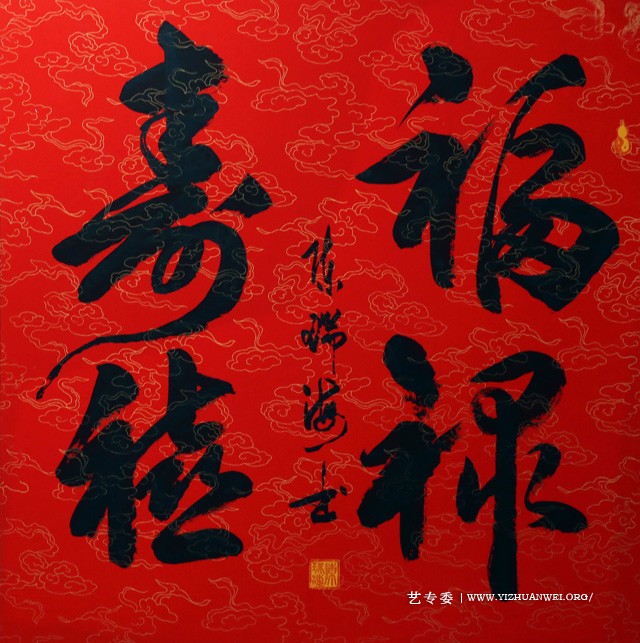 福禄
寿禧
陈瑞海书
艺专委 | WWW.YIZHUANWEI.ORG/